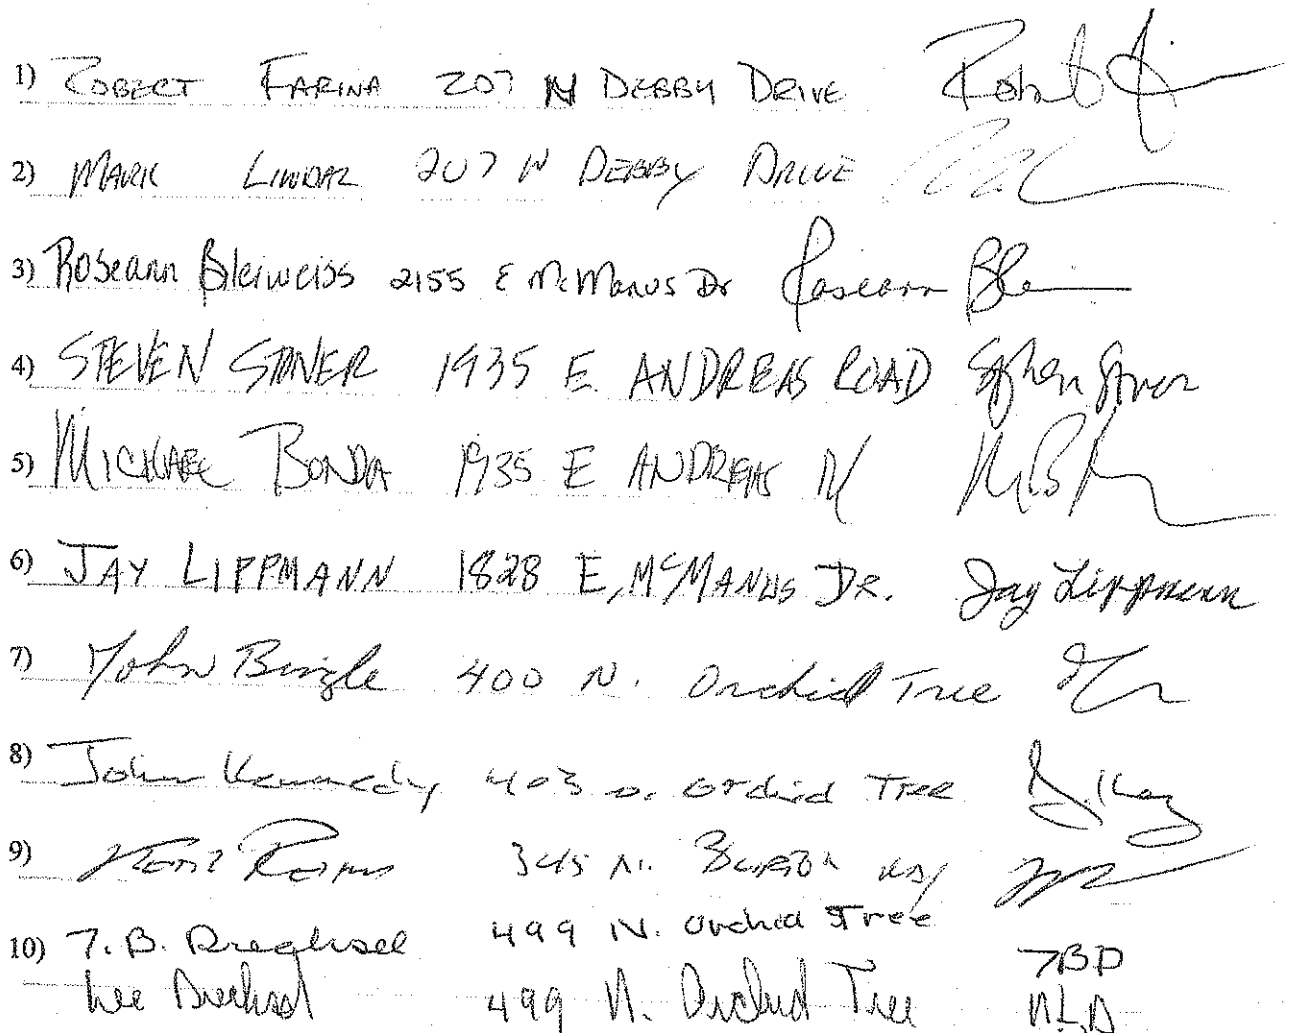 1) ROBERT FARINA 207 N DEBBY DRIVE Robert
2) MARK 207 N DEBBY DRIVE
3) Roseann Bleiweiss 2155 E McManus Dr Roseann Blei
4) STEVEN STONER 1935 E. ANDREAS ROAD Stephen Stoner
5) MICHAEL BONDA 1935 E ANDREAS Rd
6) JAY LIPPMANN 1828 E, McMANUS DR. Jay Lippmann
7) John Bingle 400 N. Orchid Tree
8) John Kennedy 403 N. Orchid Tree
9) 345 N. Burton Way
10) T.B. Drechsel 499 N. Orchid Tree TBD
Lee Drechsel 499 N. Orchid Tree N.L.D